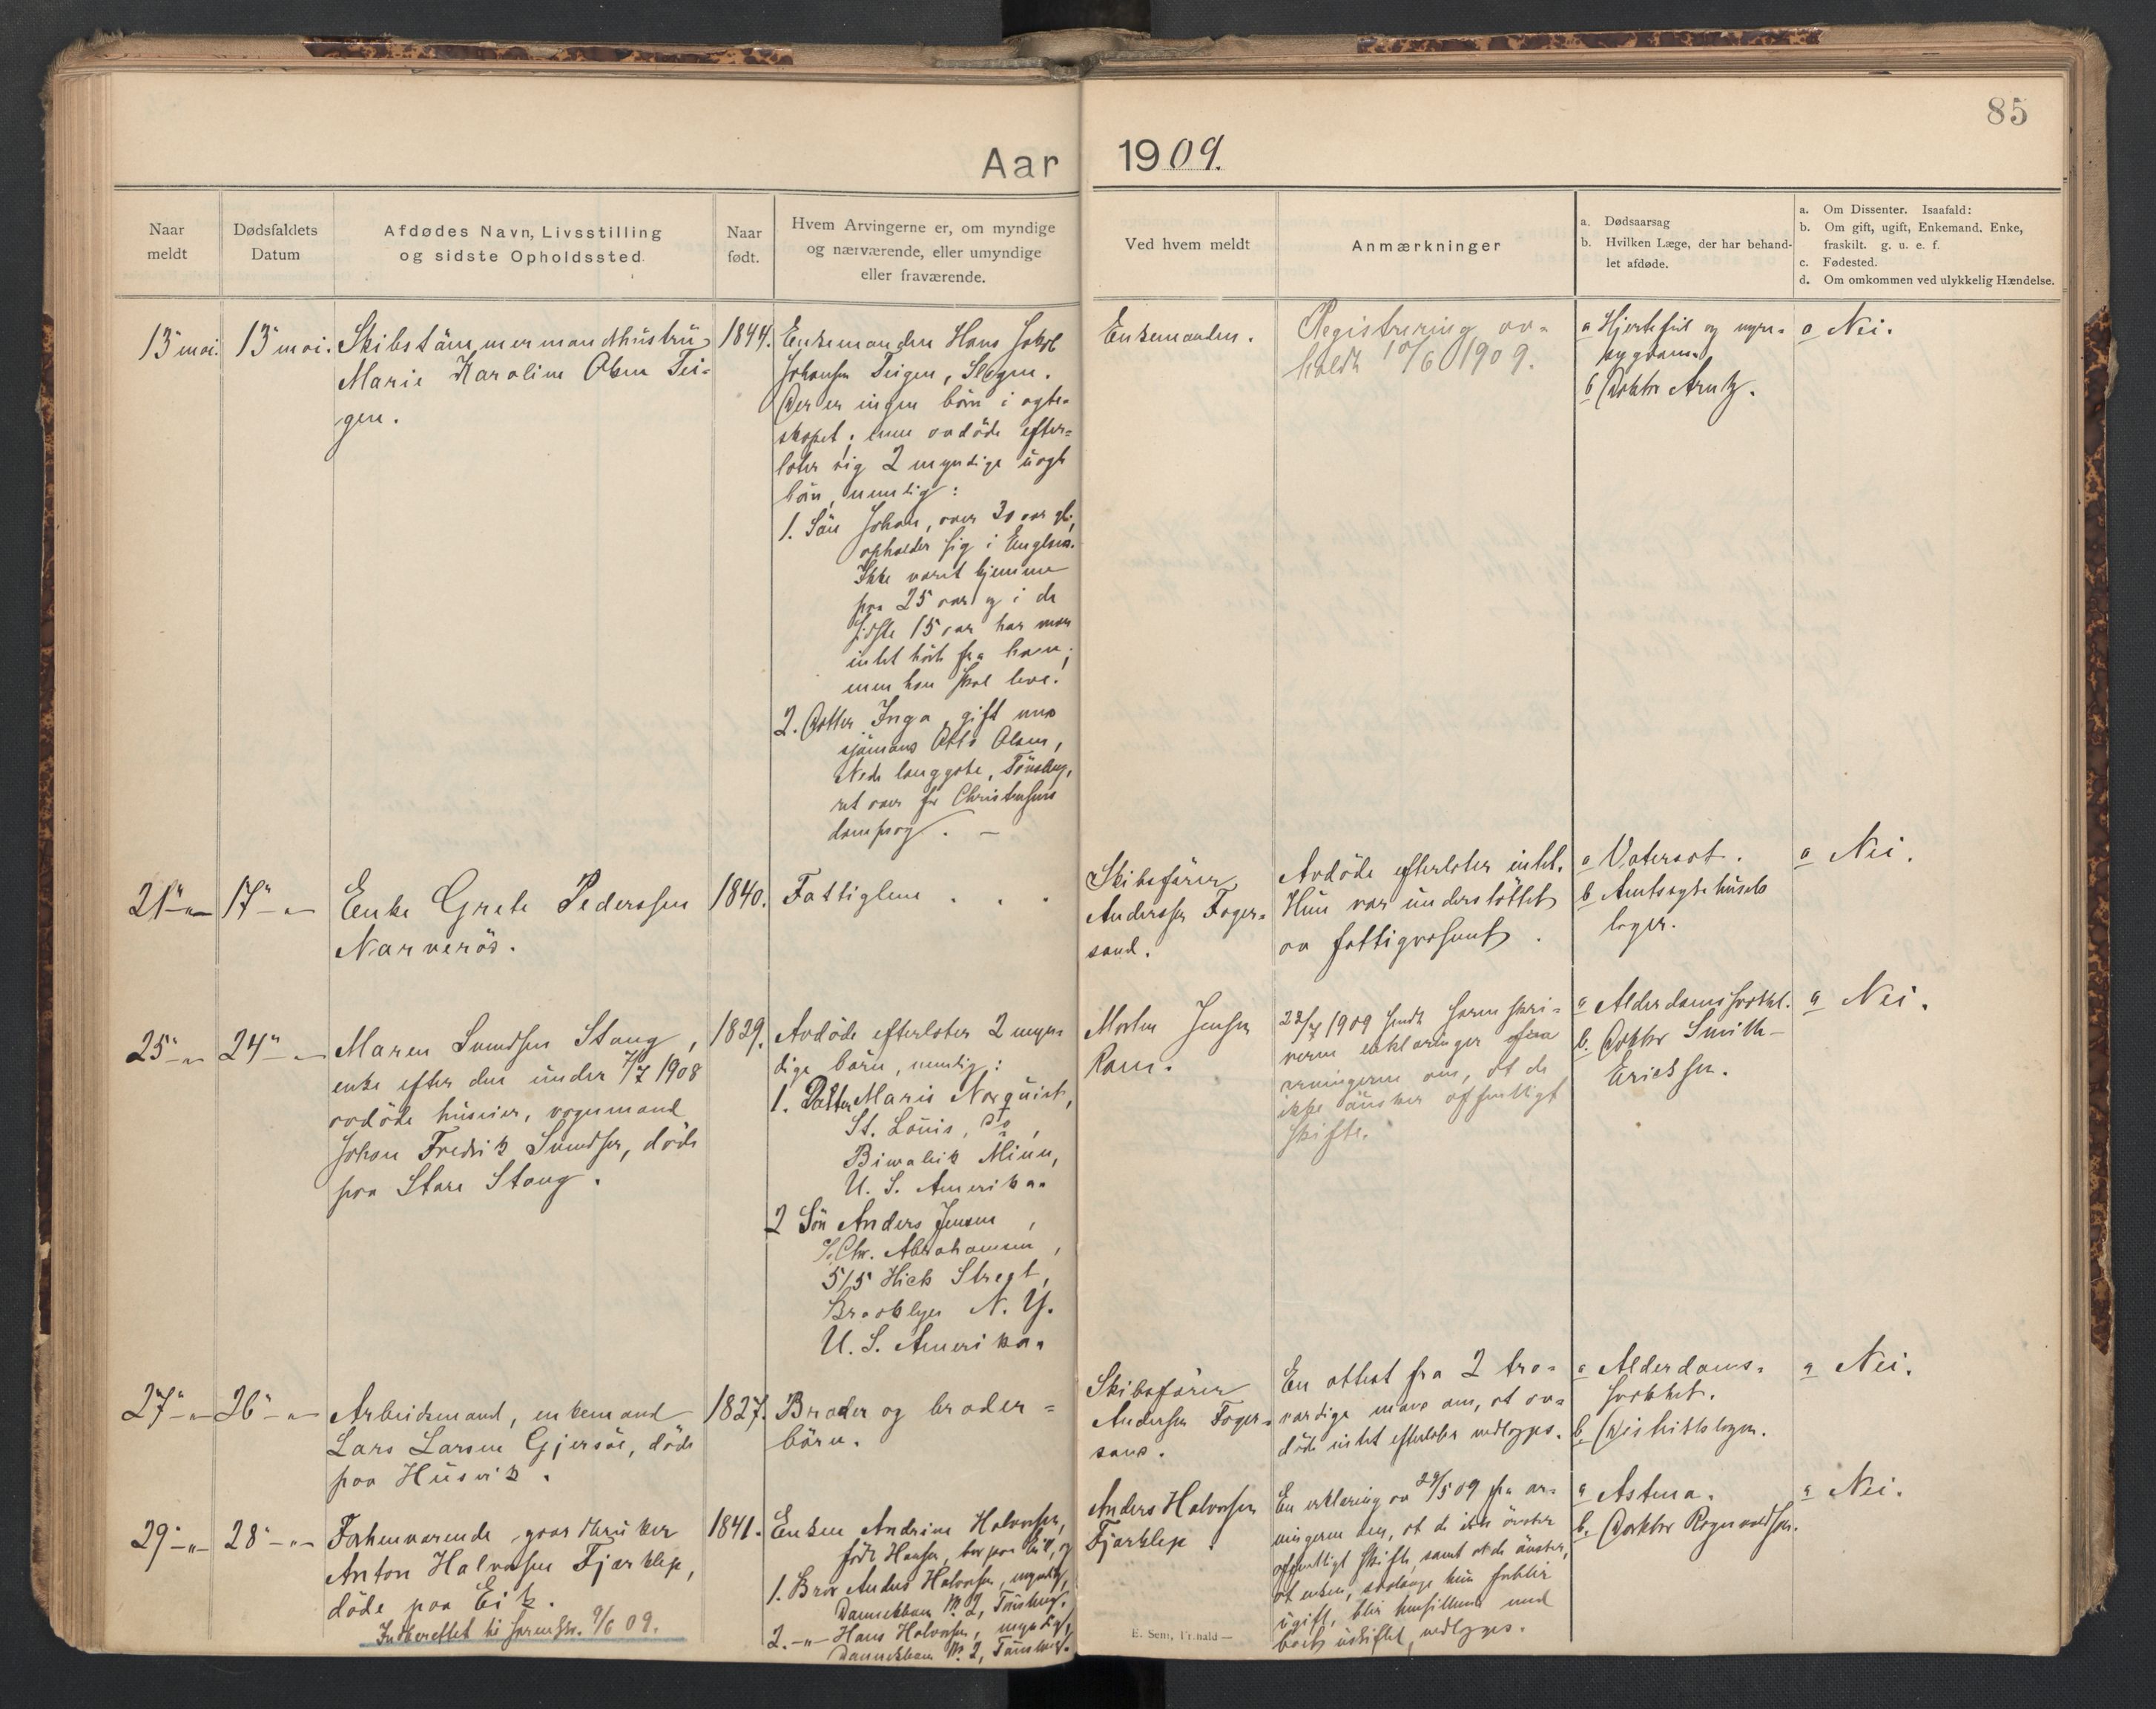 85
Aar 1909.
Naar
meldt
Dødsfaldets
Datum
Afdødes Navn, Livsstilling
og sidste Opholdssted
Naar
født.
Hvem Arvingerne er, om myndige
og nærværende, eller umyndige
eller fraværende.
Ved hvem meldt
Anmærkninger
a. Dødsaarsag
b. Hvilken Læge, der har behand-
let afdøde.
a. Om Dissenter. Isaafald:
b. Om gift, ugift, Enkemand, Enke,
fraskilt. g. u. e. f.
c. Fødested.
d. Om omkommen ved ulykkelig Hændelse.
13 mai. 13 mai.
Skibstømmermandhustru
Marie Karoline Olsen Tei-
gen.
1844.
Enkemanden Hans Jakob
Johansen Teigen, Slagen.
Der er ingen børn i egte-
skapet; men avdøde efter-
later sig 2 myndige uegte
børn, nemlig:
1. Søn Johan, over 30 aar gl.,
opholder sig i England.
Ikke været hjemme
paa 25 aar og i de
sidste 15 aar har man
intet hørt fra ham;
men han skal leve.
2. Datter Inga, gift med
sjømand Otto Olsen,
Nedr langgate, Tønsberg,
ret over for Christensens
dampsag. —
Enkemanden.
Registrering av-
holdt 10/6 1909.
a Hjertefeil og nyre-
sygdom.
b Doktor Arntz.
a Nei.
21 — " — 17 — " —
Enke Grete Pederssen
Narverød.
1840.
Fattiglem . . .
Skibsfører
Anderssen Fager-
sand.
Avdøde efterlater intet.
Hun var understøttet
av fattigvæsenet.
a Vatersot.
b Amtssykehusets
læger.
a Nei.
25 — " — 24 — " —
Maren Svendsen Stang,
enke efter den under 7/7 1908
avdøde huseier, vognmand
Johan Fredrik Svendsen, døde
paa Store Stang.
1829.
Avdøde efterlater 2 myn-
dige børn, nemlig:
1. Datter Maris Norquist,
St. Louis, Co,
Biwabik Minn,
U. S. Amerika.
2 Søn Anders Jensen,
% Chr. Abrahamsen,
515 Hick Street,
Brooklyn N. Y.
U. S. Amerika.
Morten Jensen
Ram.
28/7 1909 sendt sorenskri-
veren erklæringer fra
arvingerne om, at de
ikke ønsker offentligt
skifte.
a Alderdomssvækkel.
b. Doktor Smith-
Ericksen.
a Nei.
27 — " — 26 — " —
Arbeidsmand, enkemand
Lars Larsen Gjersøe, døde
paa Husvik.
1827.
Broder og broder-
børn.
Skibsfører
Andersen Fager-
sand.
En attest fra 2 tro-
værdige mænd om, at av-
døde intet efterlater vedlægges.
a Alderdoms-
svækket.
b. Distriktslægen.
a Nei.
29 — " — 28 — " —
Forhenværende gaardbruker
Anton Halvorsen Fjærklep,
døde paa Eik.
Indberettet til sorenskr. 9/6 09.
1841.
Enken Andrine Halvorsen,
født Hansen, bor paa Eik, og
1. Bror Anders Halvorsen, myndig,
Dannebken No 2, Tønsberg.
2. — " — Hans Halvorsen, myndig,
No 2, Tønsberg.
Anders Halvorsen
Fjærklep.
En erklæring av 29/5 09 fra ar-
vingerne om, at de ikke ønsker
offentligt skifte, samt at de ønsker,
at enken, saalænge hun forblir
ugift, blir hensittende med
boet uskiftet, vedlægges.
a Astma.
b. Doktor Rognvaldsen.
a Nei.
E. Sem,